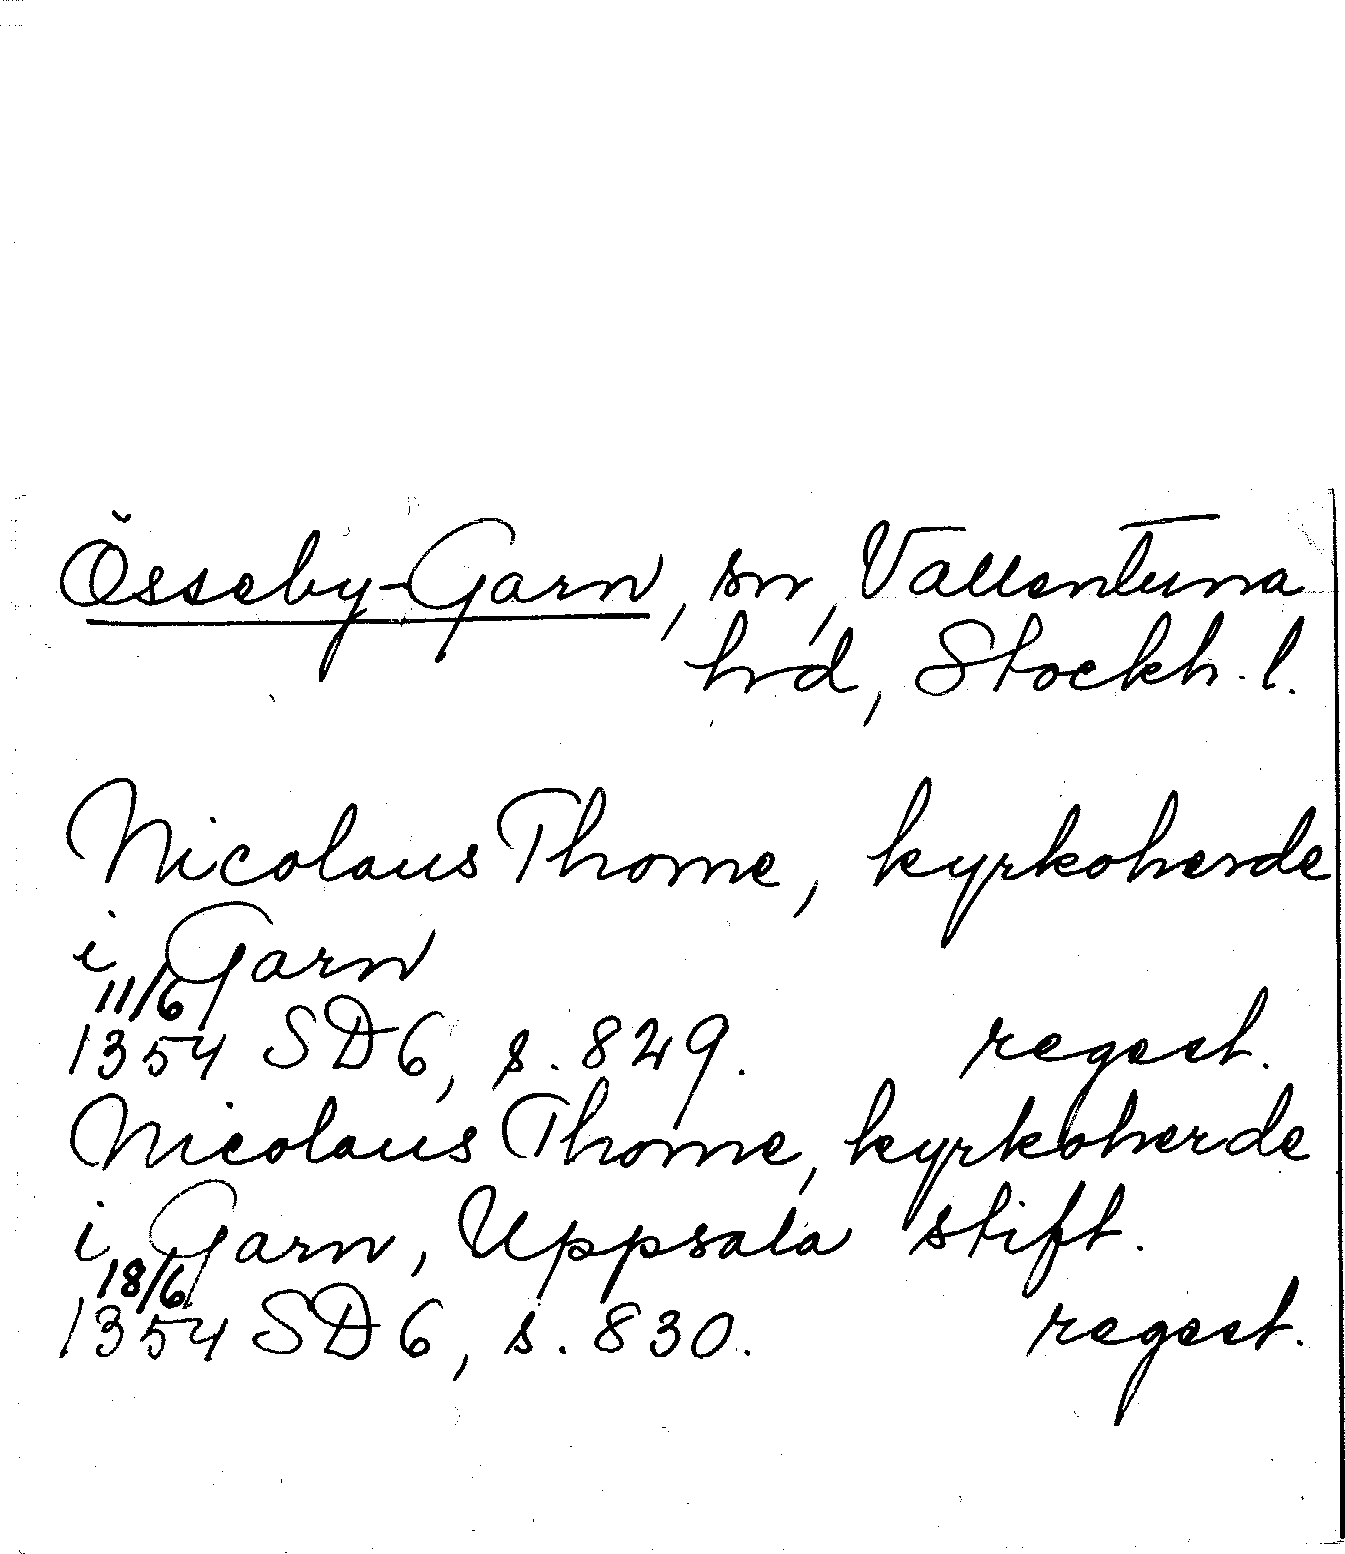 Össeby-Garn, sn, Vallentuna
hd, Stockh. l.
Nicolaus Thome, kyrkoherde
i Garn
11/6
1354 SD 6, s. 829. regest.
Nicolaus Thome, kyrkoherde
i Garn, Uppsala stift.
18/6
1354 SD 6, s. 830. regest.